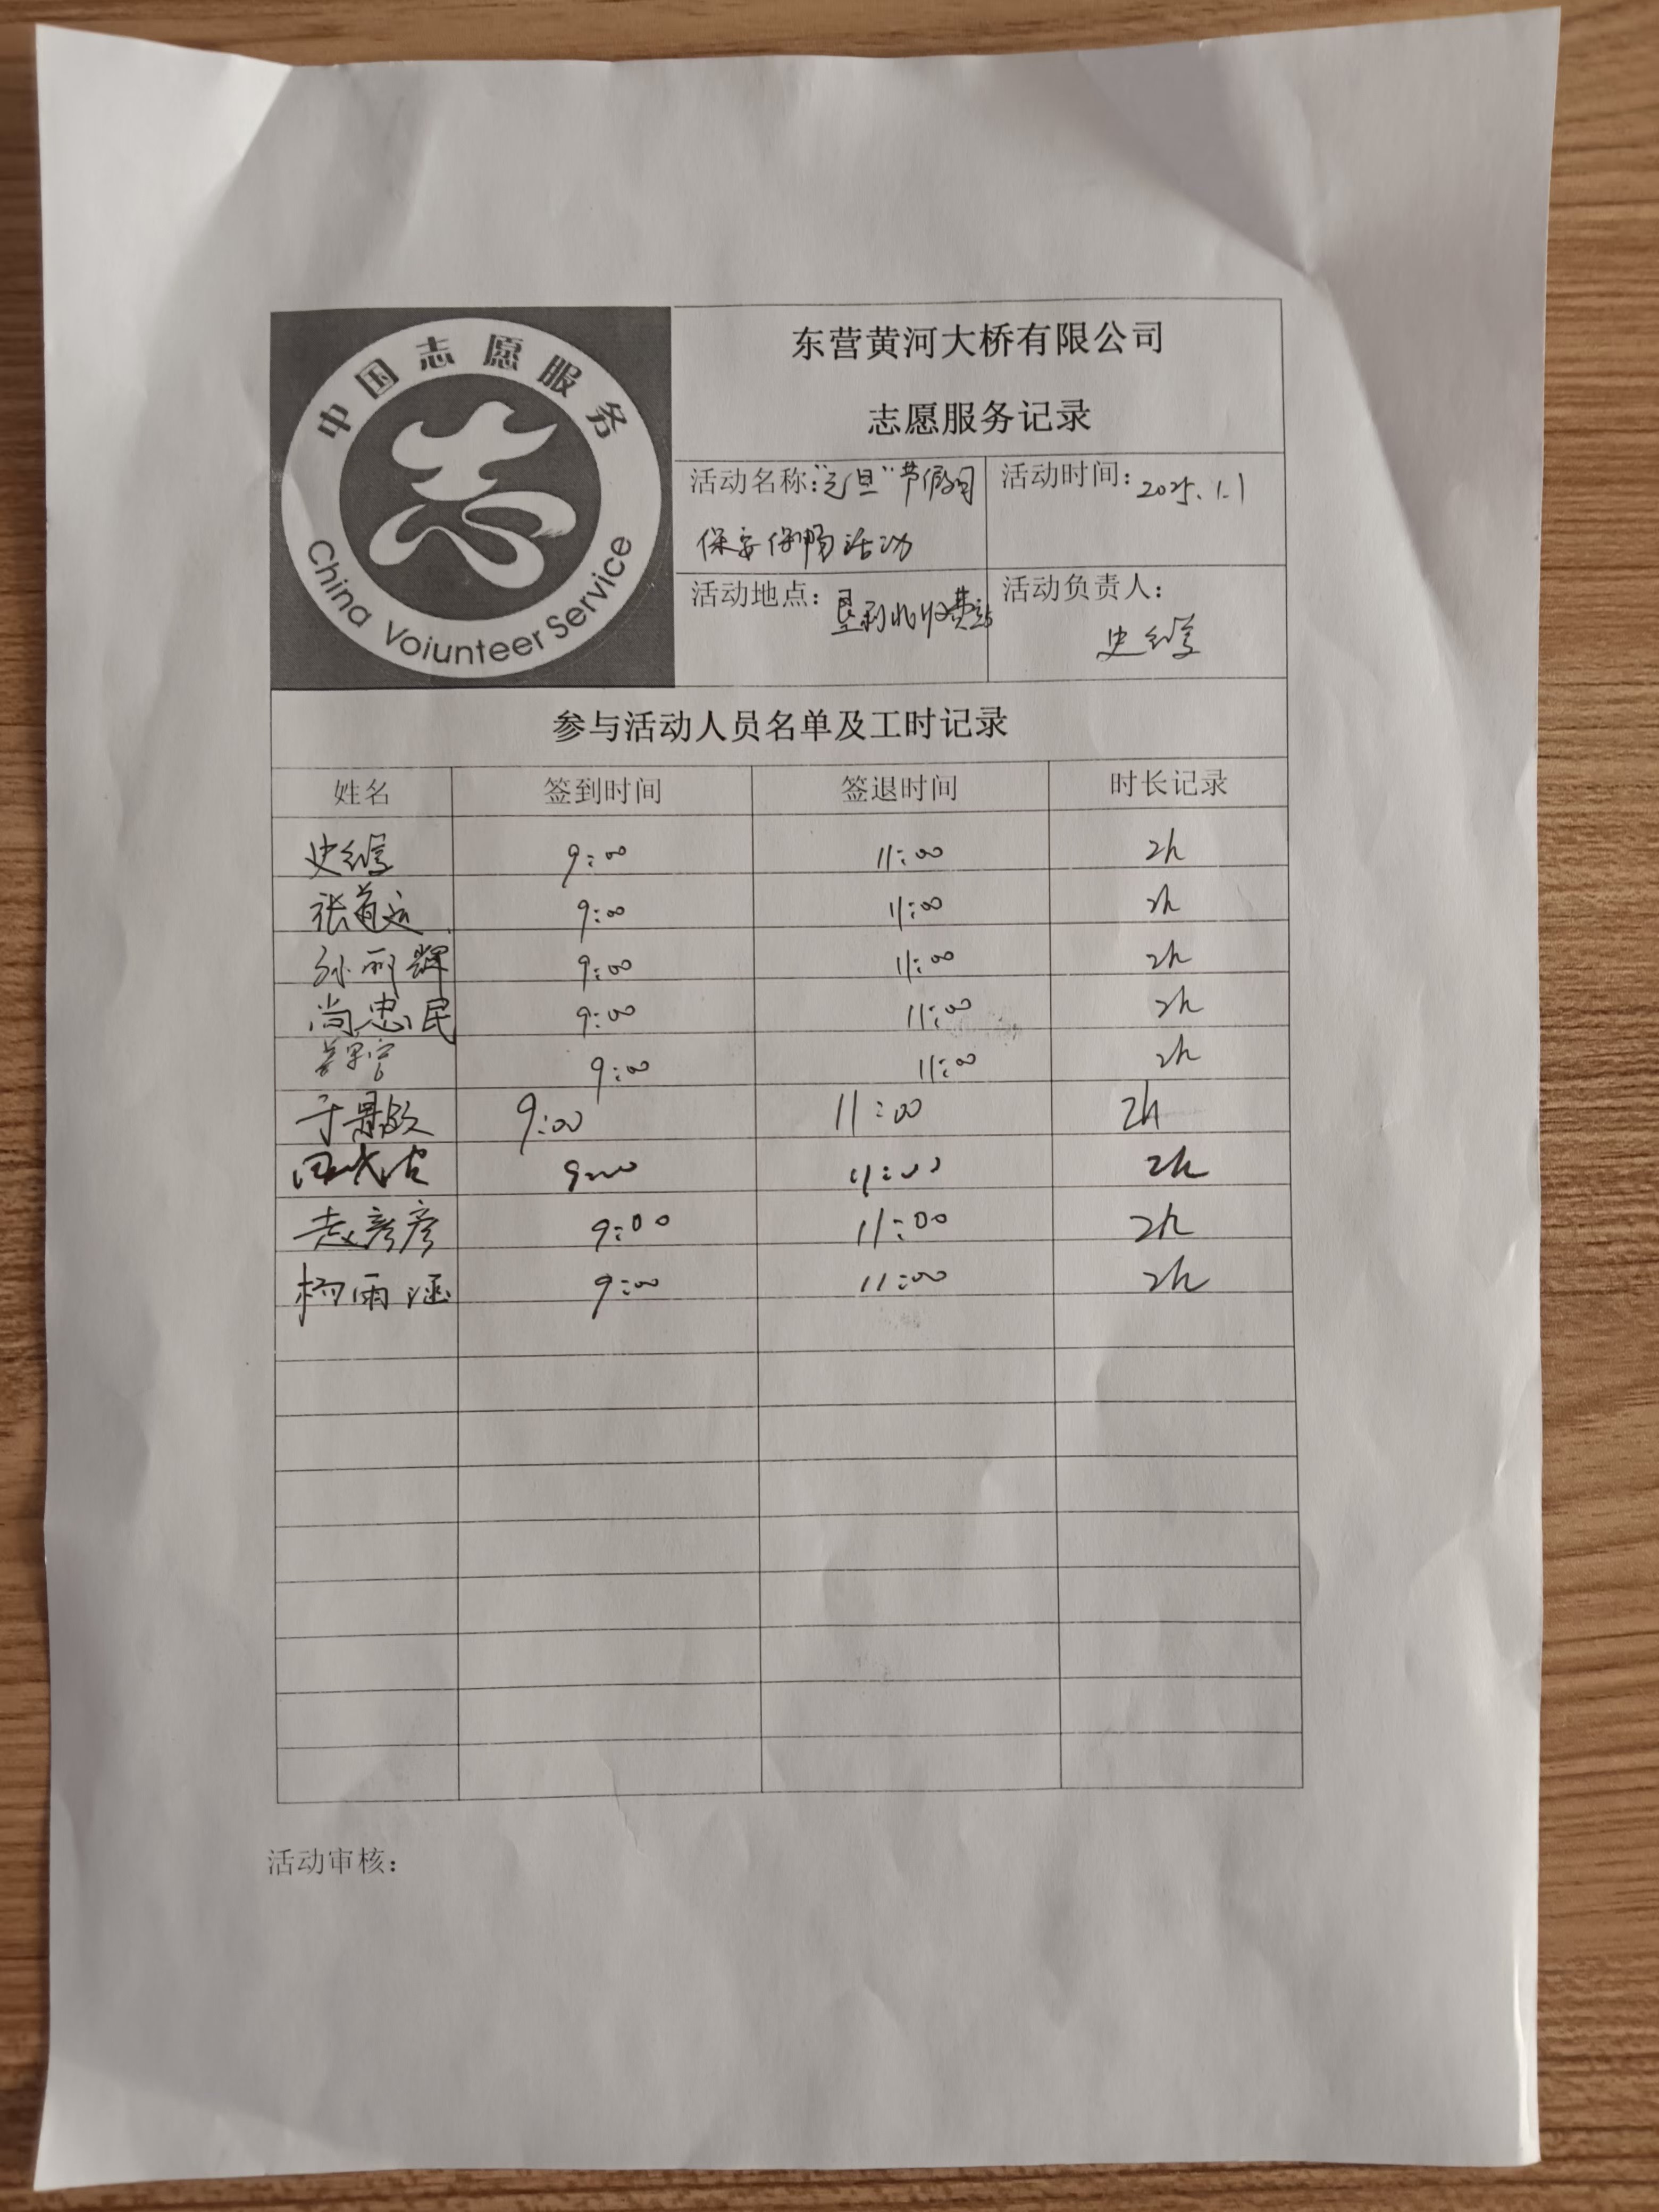 中国志愿服务
China Voiunteer Service
东营黄河大桥有限公司
志愿服务记录
活动名称："元旦"节假日
保安保畅活动
活动时间：2025.1.1
活动地点：垦利北收费站
活动负责人：
史
参与活动人员名单及工时记录
姓名 签到时间 签退时间 时长记录
史 9:00 11:00 2h
张道运 9:00 11:00 2h
孙丽辉 9:00 11:00 2h
尚忠民 9:00 11:00 2h
9:00 11:00 2h
于 9:00 11:00 2h
9:00 11:00 2h
彦彦 9:00 11:00 2h
杨雨涵 9:00 11:00 2h
活动审核：